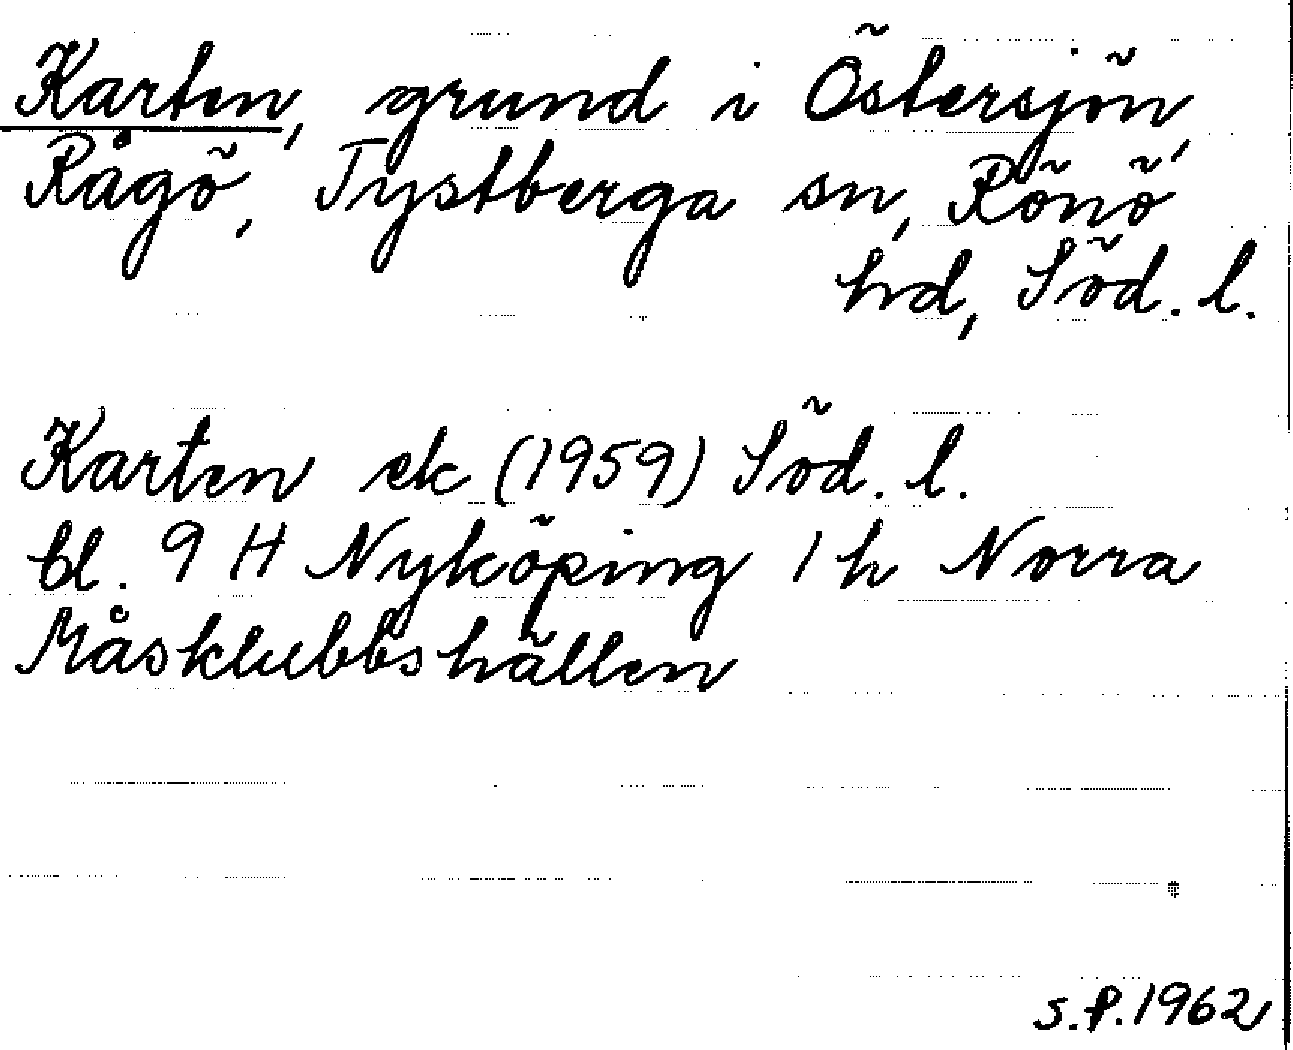 Karten, grund i Östersjön,
Rågö, Tystberga sn, Rönö
hd, Söd. l.
Karten ek (1959) Söd. l.
bl. 9 H Nyköping 1 h Norra
Måsklubbshällen
S.P. 1962